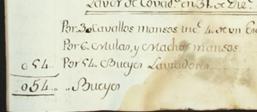 Por 30 Cavallos mansos in.s 4. de un En
Por 6. Mulas, y Machos mansos.
054. Por 54. Bueyes Lauradores
054. .. Bueyes